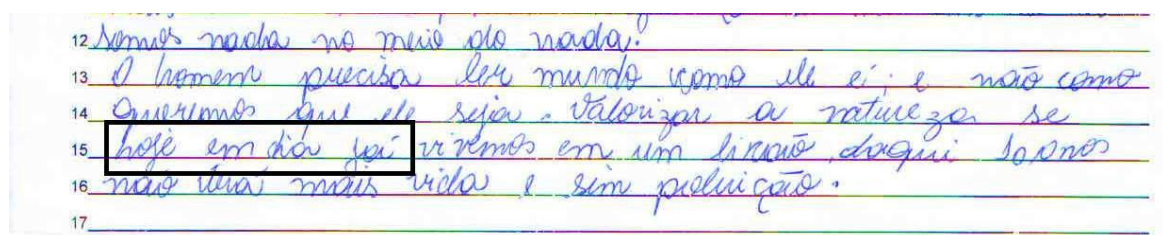 12 somos nada no meio do nada.
13 O homem precisa ler mundo como ele é; e não como
14 queremos que ele seja. Valorizar a natureza se
15 hoje em dia já vivemos em um lixão, daqui 10 anos
16 não terá mais vida e sim poluição.
17